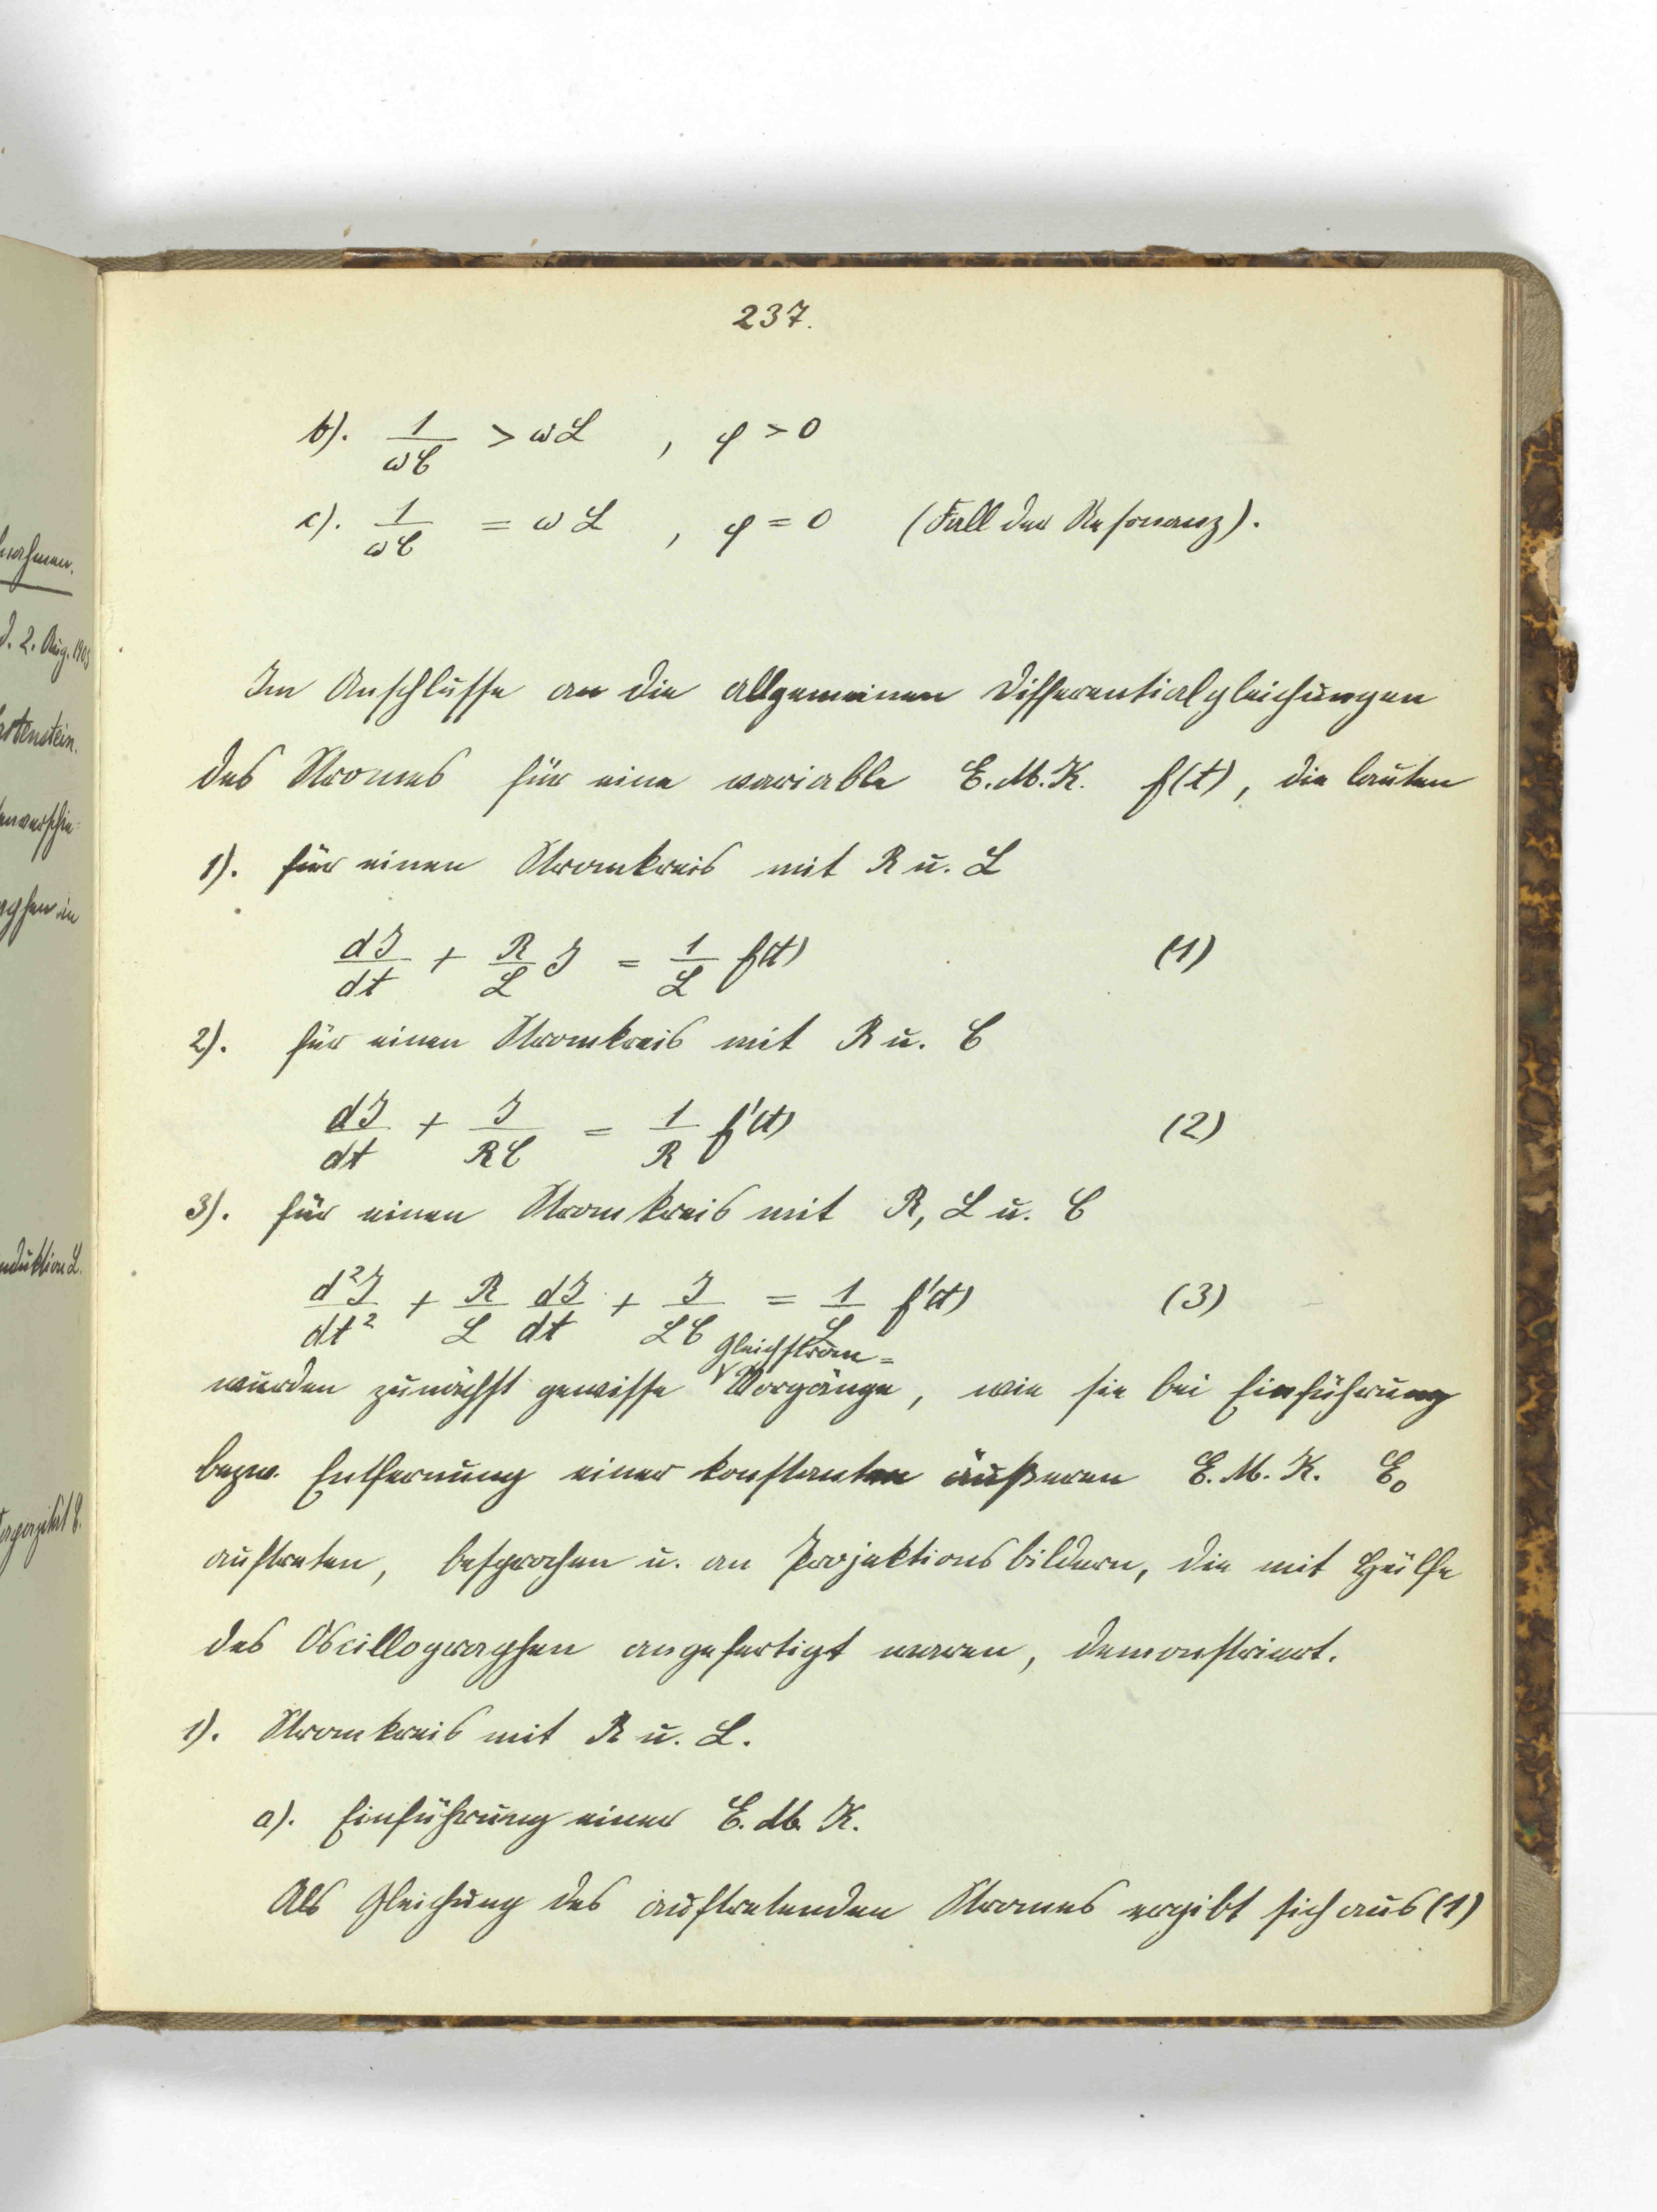 237.
b). 1/ωC > ωL , φ > 0
c). 1/ωC = ωL , φ = 0 (Fall der Resonanz).
Im Anschlusse an die allgemeinen Differentialgleichungen
des Stromes für eine variable E.M.K. f(t), die lauten
1). für einen Stromkreis mit R u. L
dJ/dt + R/L J = 1/L f(t) (1)
2). für einen Stromkreis mit R u. C
dJ/dt + J/RC = 1/R f'(t) (2)
3). für einen Stromkreis mit R, L u. C
d²J/dt² + R/L dJ/dt + J/LC = 1/L f'(t) (3)
Gleichstrom=
wurden zunächst gewisse Vorgänge, wie sie bei Einführung
bezw. Entfernung einer konstanten äußeren E.M.K. E₀
auftreten, besprochen u. an Projektionsbildern, die mit Hülfe
des Oscillographen angefertigt waren, demonstriert.
1). Stromkreis mit R u. L.
a). Einführung einer E.M.K.
Als Gleichung des auftretenden Stromes ergibt sich aus (1)
nahmen.
d. 2. Aug. 1905
tenstein.
duktion L.